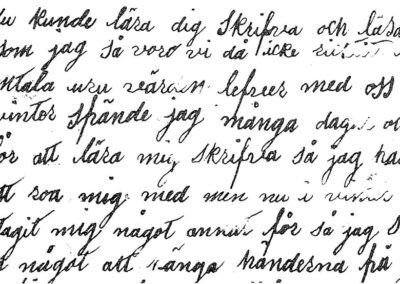 du kunde lära dig skrifva och läsa
som jag så voro vi då icke
uru världen lefver med oss
vinter spände jag många dagar
för att lära mig skrifva så jag ha
att roa mig med men nu i vinter
tagit mig något annat för så jag
något att hänga händerna på